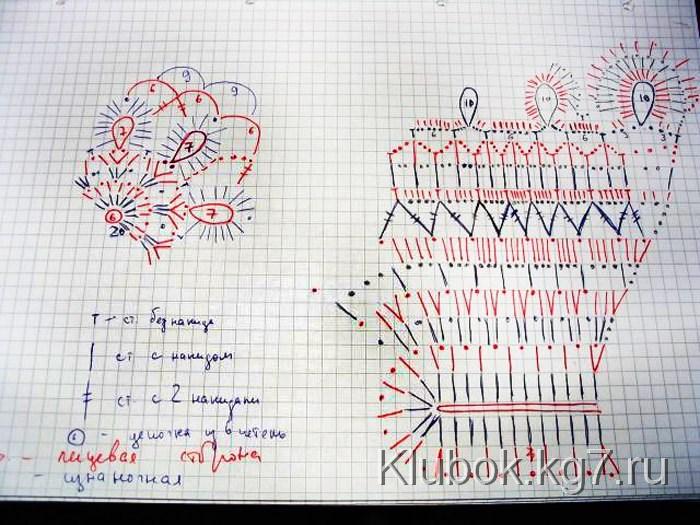 9
9
6
6
6
7
7
7
6
20
10
10
10
6
6
3
3
т - ст. без накида
ст с накидом
ст. с 2 накидами
6 - цепочка из 6 петель
- лицевая сторона
- изнаночная
Klubok.kg7.ru